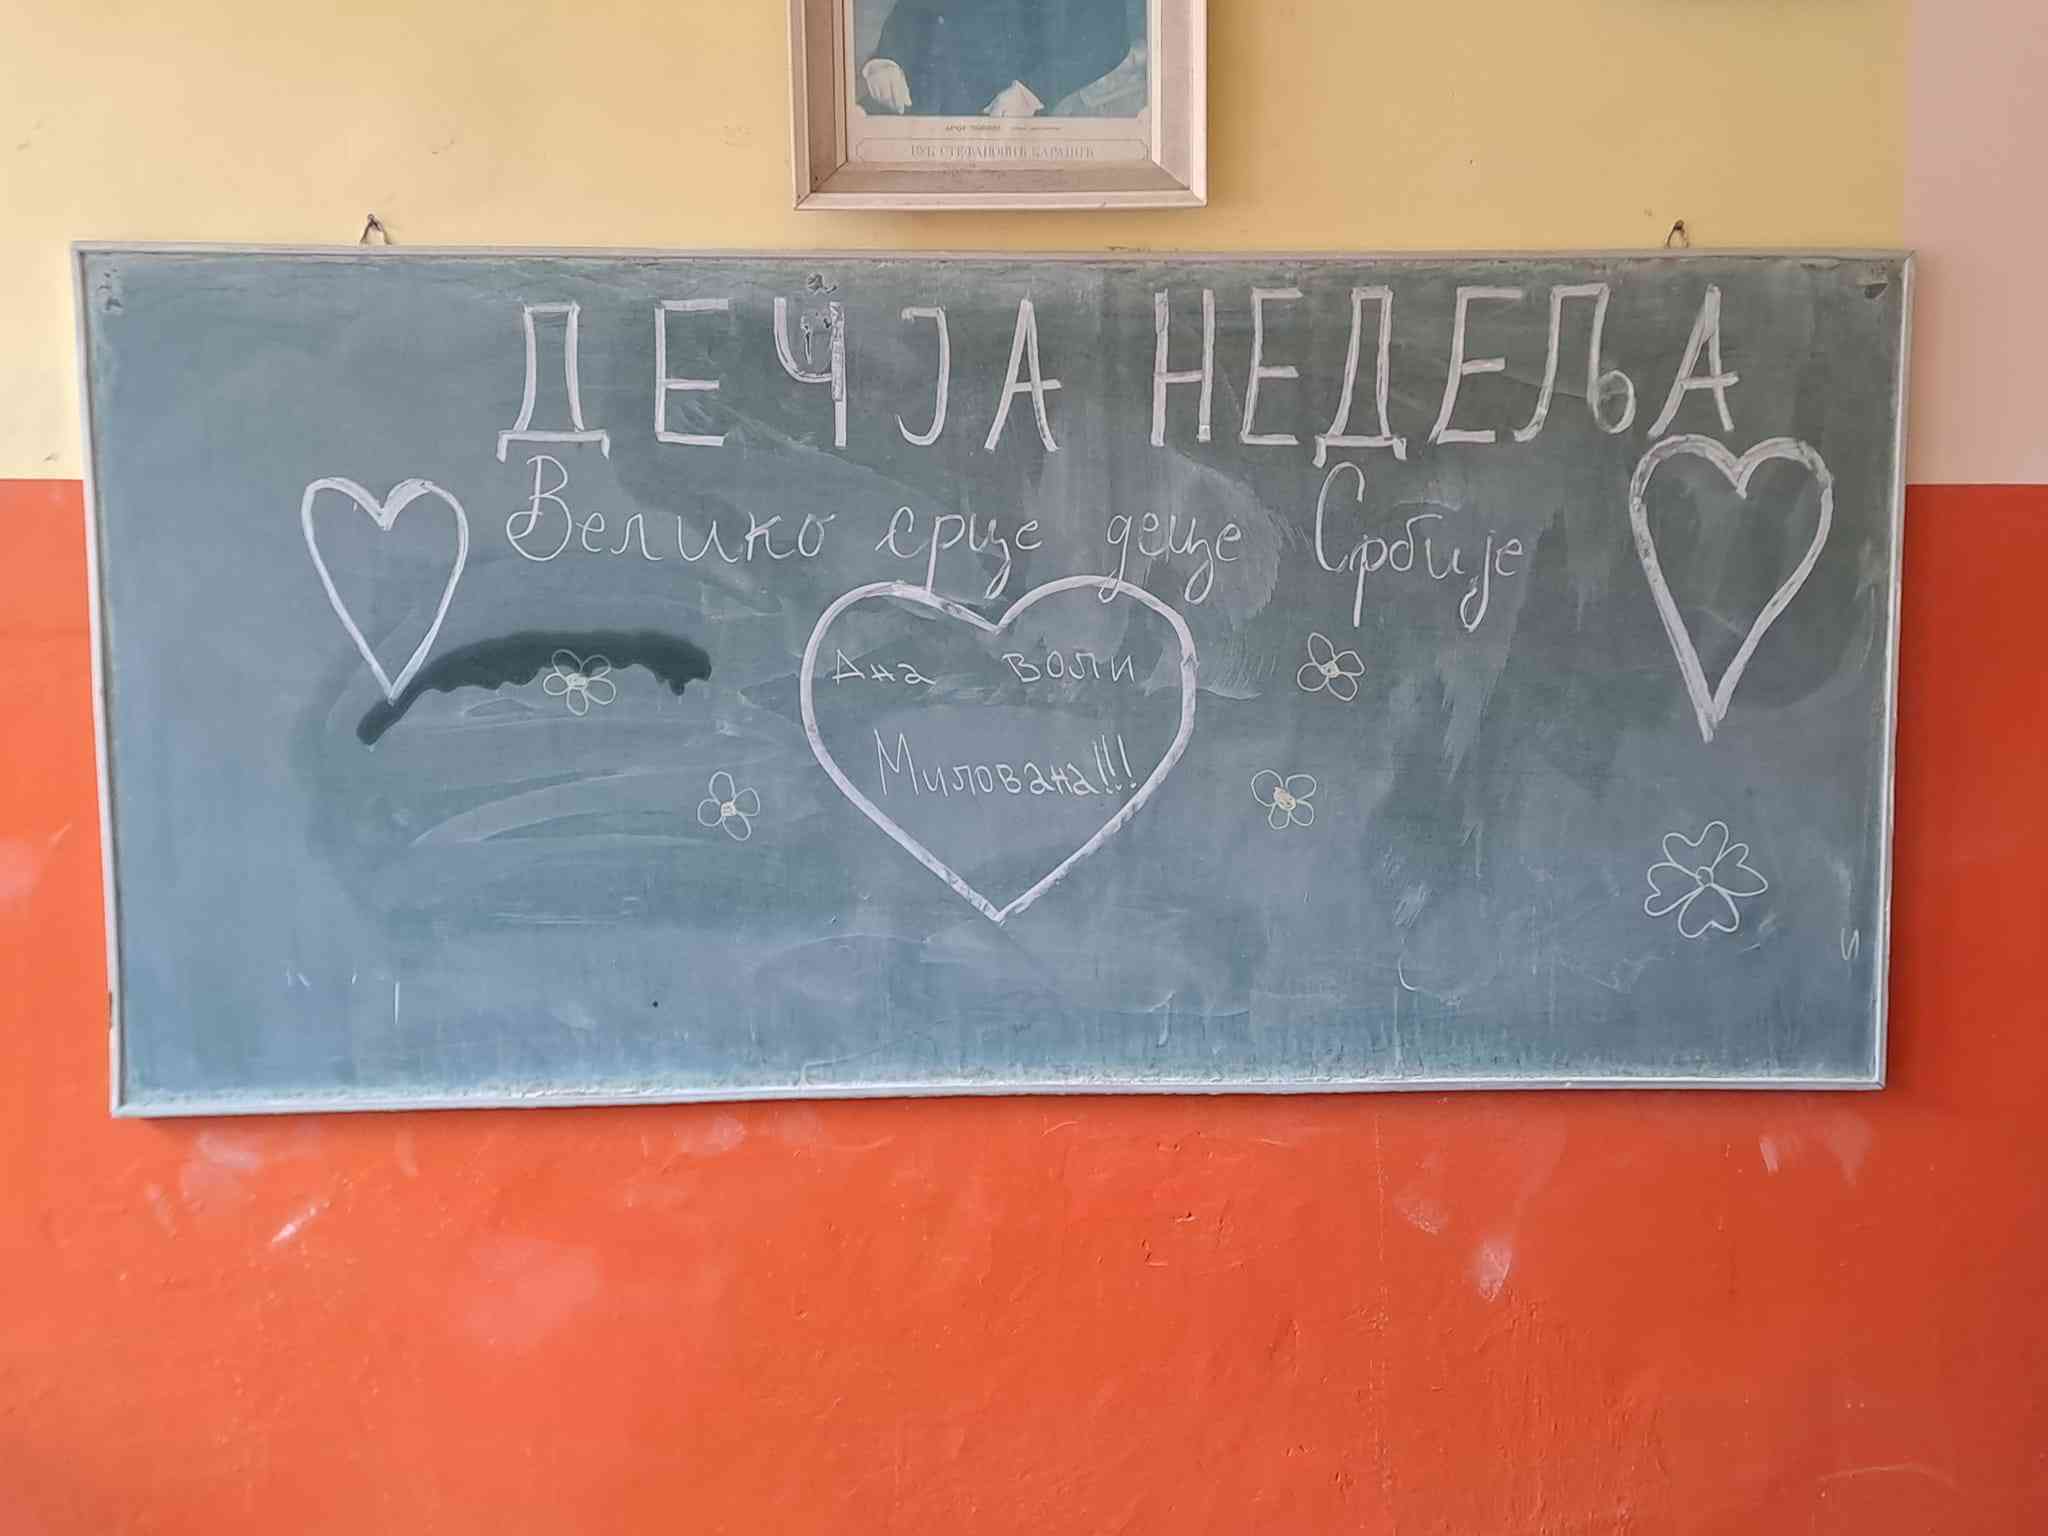 ВУК СТЕФАНОВИЋ КАРАЏИЋ
ДЕЧЈА НЕДЕЉА
Велико срце деце Србије
Ана воли
Милована!!!